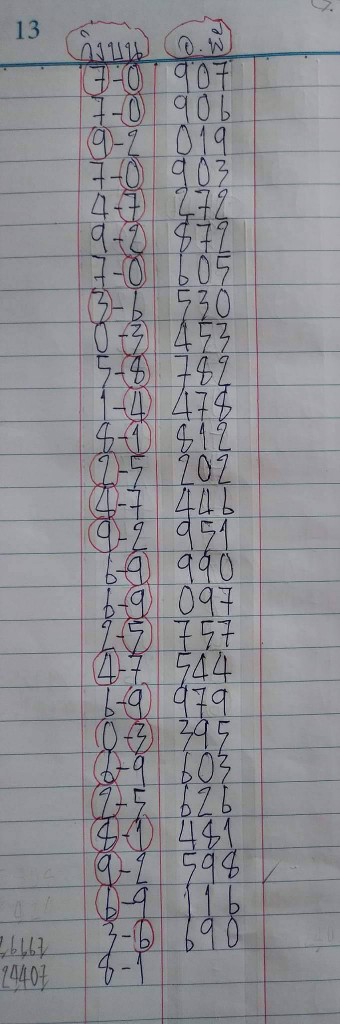 13
วิ่งบน จ.พี
7-0 907
7-0 906
9-2 019
7-0 903
4-7 272
9-2 872
7-0 605
3-6 530
0-3 453
5-8 782
1-4 478
8-1 812
2-5 202
4-7 446
9-2 951
6-9 990
6-9 097
2-5 757
4-7 544
6-9 979
0-3 395
6-9 603
2-5 626
8-1 481
9-2 598
6-9 116
3-6 690
8-1
24407